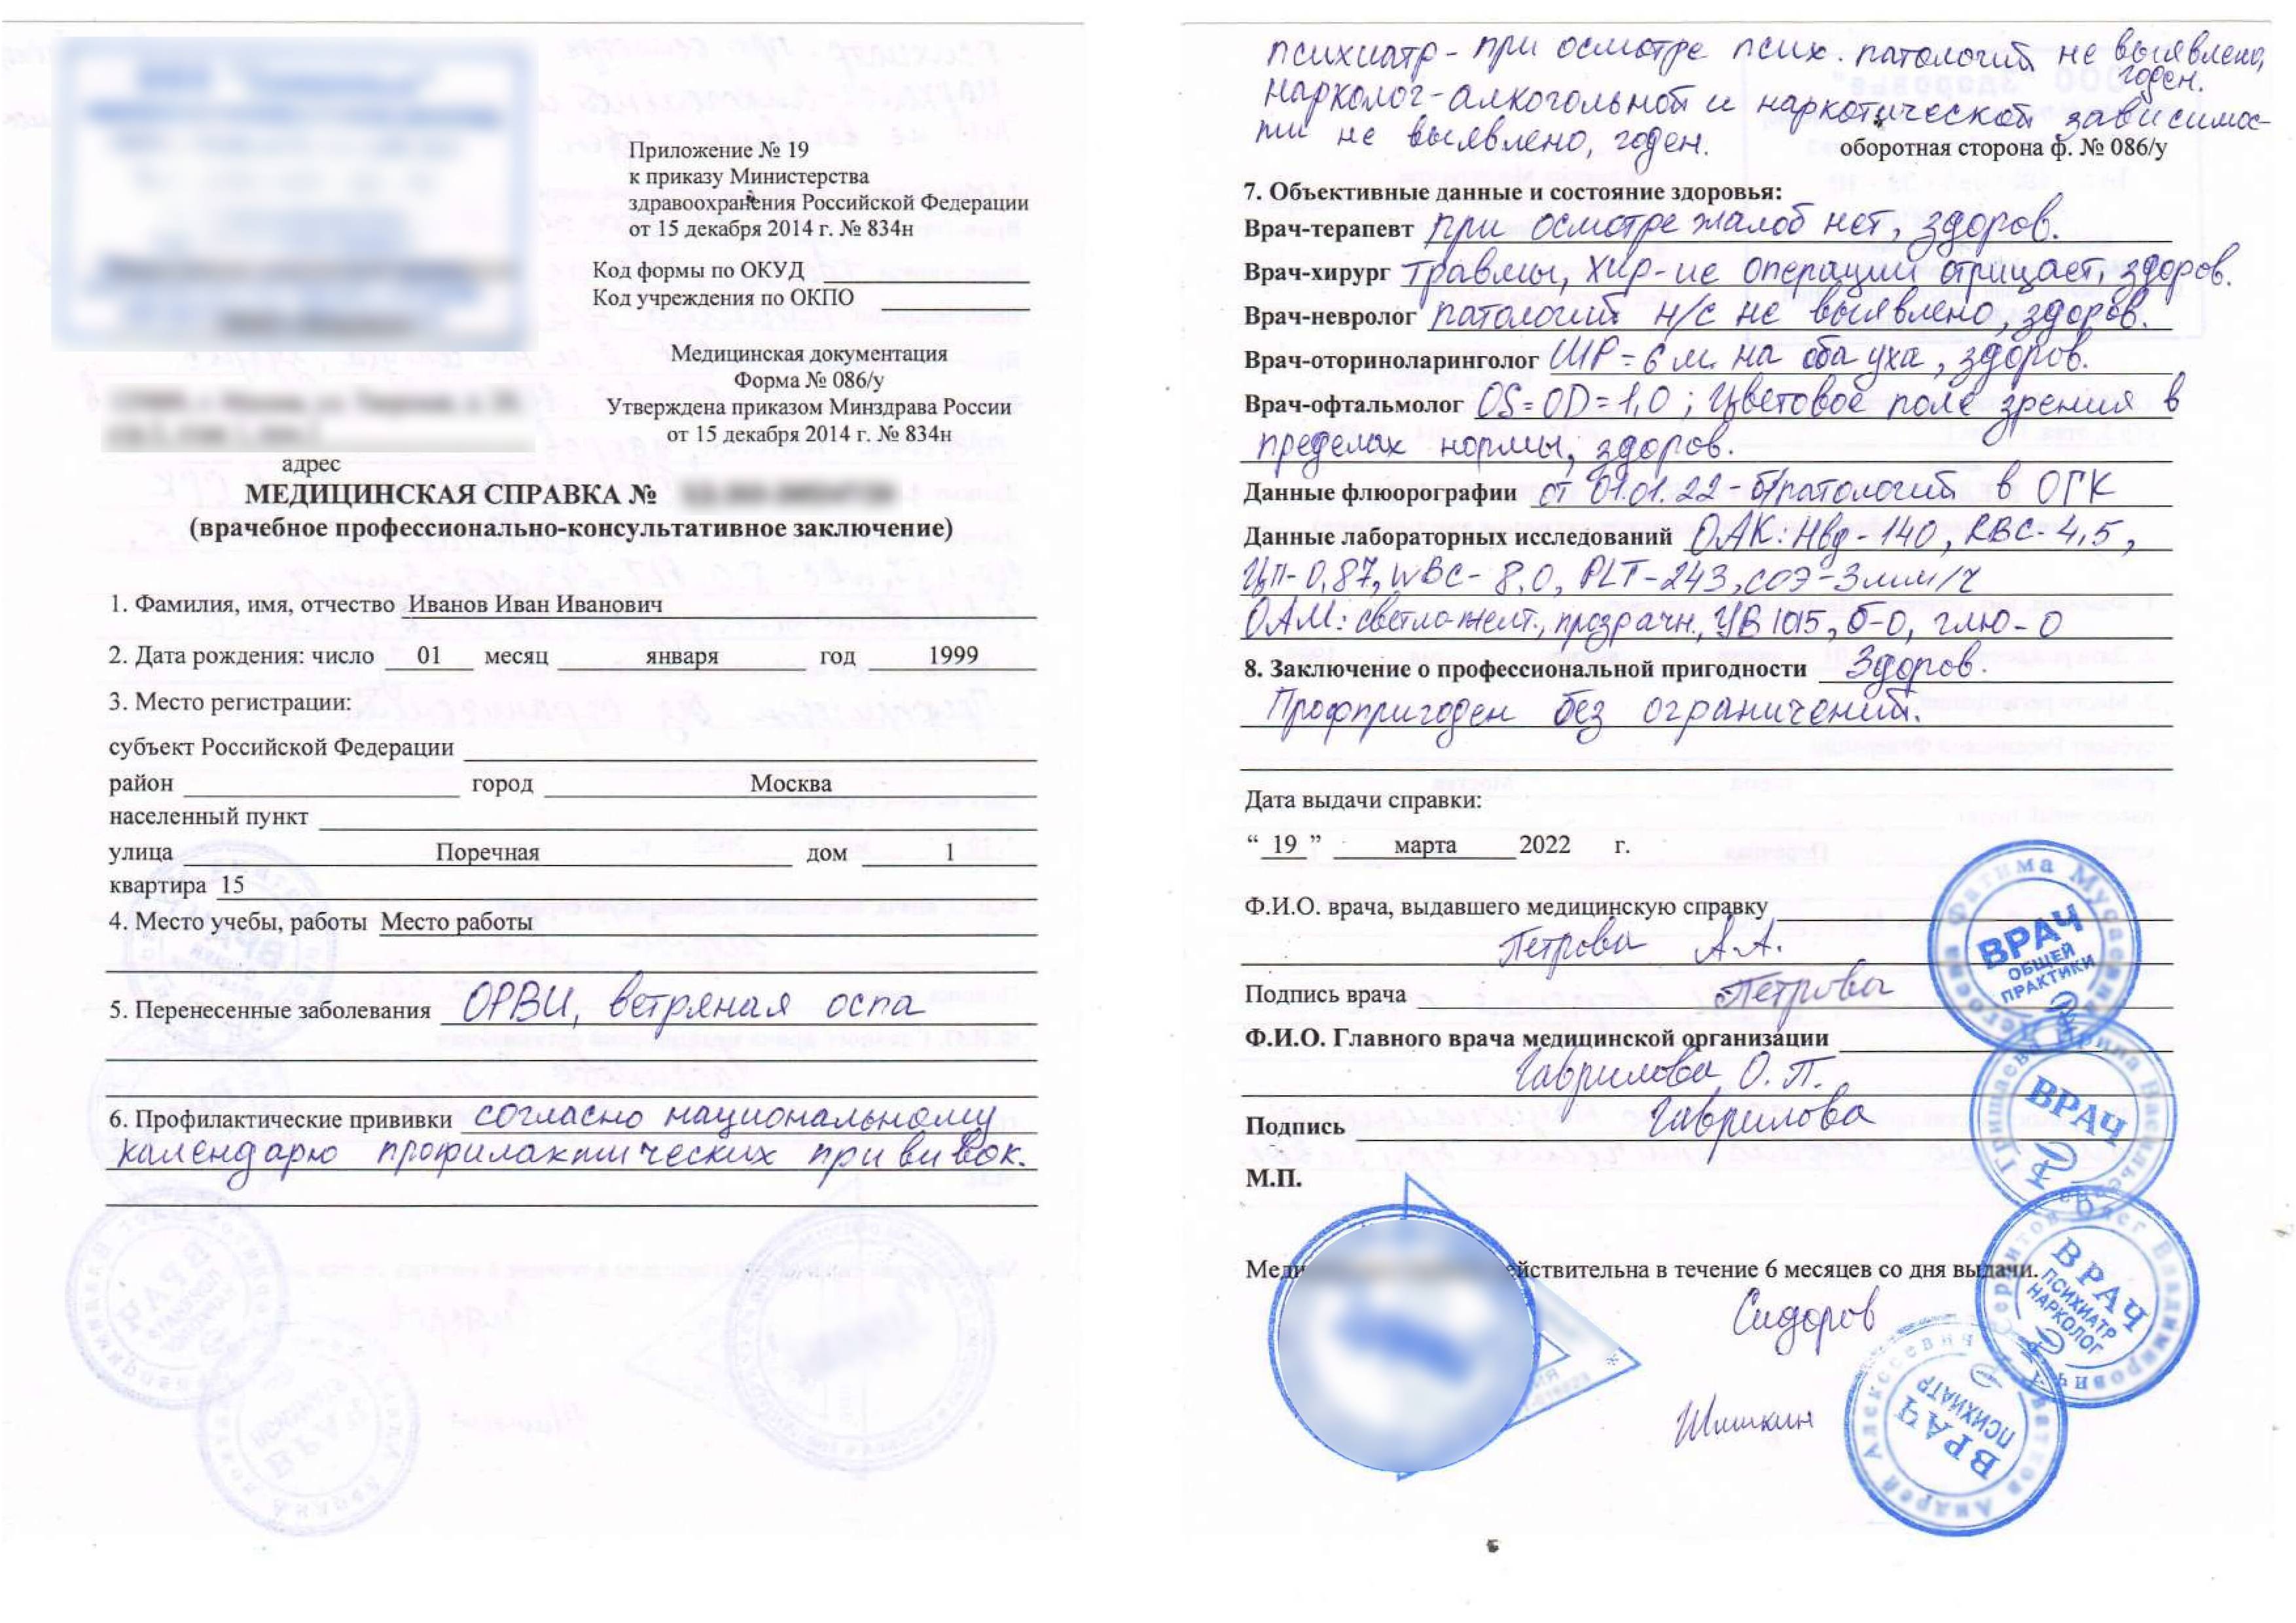 Приложение № 19
к приказу Министерства
здравоохранения Российской Федерации
от 15 декабря 2014 г. № 834н
Код формы по ОКУД
Код учреждения по ОКПО
Медицинская документация
Форма № 086/у
Утверждена приказом Минздрава России
от 15 декабря 2014 г. № 834н
адрес
МЕДИЦИНСКАЯ СПРАВКА №
(врачебное профессионально-консультативное заключение)
1. Фамилия, имя, отчество Иванов Иван Иванович
2. Дата рождения: число 01 месяц января год 1999
3. Место регистрации:
субъект Российской Федерации
район город Москва
населенный пункт
улица Поречная дом 1
квартира 15
4. Место учебы, работы Место работы
5. Перенесенные заболевания ОРВИ, ветряная оспа
6. Профилактические прививки согласно национальному
календарю профилактических прививок.
психиатр - при осмотре псих. патологий не выявлено,
годен.
нарколог - алкогольной и наркотической зависимос-
ти не выявлено, годен.
оборотная сторона ф. № 086/у
7. Объективные данные и состояние здоровья:
Врач-терапевт при осмотре жалоб нет, здоров.
Врач-хирург травмы, хир-ие операции отрицает, здоров.
Врач-невролог патологий н/с не выявлено, здоров.
Врач-оториноларинголог ШР = 6 м. на оба уха, здоров.
Врач-офтальмолог OS = OD = 1,0 ; Цветовое поле зрения в
пределах нормы, здоров.
Данные флюорографии от 01.01.22 - б/патологий в ОГК
Данные лабораторных исследований ОАК: Нвд - 140, RBC - 4,5,
ЦП - 0,87, WBC - 8,0, PLT - 243, СОЭ - 3 мм/ч
ОАМ: светло-желт., прозрачн., УВ 1015, б - 0, глю - 0
8. Заключение о профессиональной пригодности Здоров.
Профпригоден без ограничений.
Дата выдачи справки:
“ 19 ” марта 2022 г.
Ф.И.О. врача, выдавшего медицинскую справку
Петрова А.А.
Подпись врача Петрова
Ф.И.О. Главного врача медицинской организации
Гаврилова О.П.
Подпись Гаврилова
М.П.
действительна в течение 6 месяцев со дня выдачи.
Сидоров
Шишкин
ВРАЧ
ОБЩЕЙ
ПРАКТИКИ
Фатима
ВРАЧ
Ирина
ВРАЧ
ПСИХИАТР
НАРКОЛОГ
Олег Владимирович
ВРАЧ
ПСИХИАТР
Андрей Алексеевич